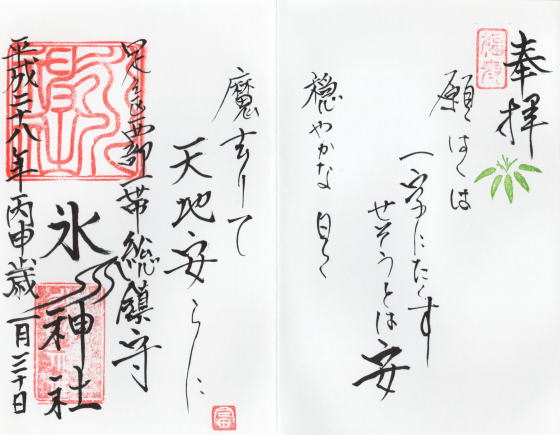 奉拝
願はくは
一字にたくす
せそうとは 安
穏やかな 日々
魔去りて
天地安らに
足立西部一帯 総鎮守
氷川神社
平成二十八年丙申歳 一月三十日